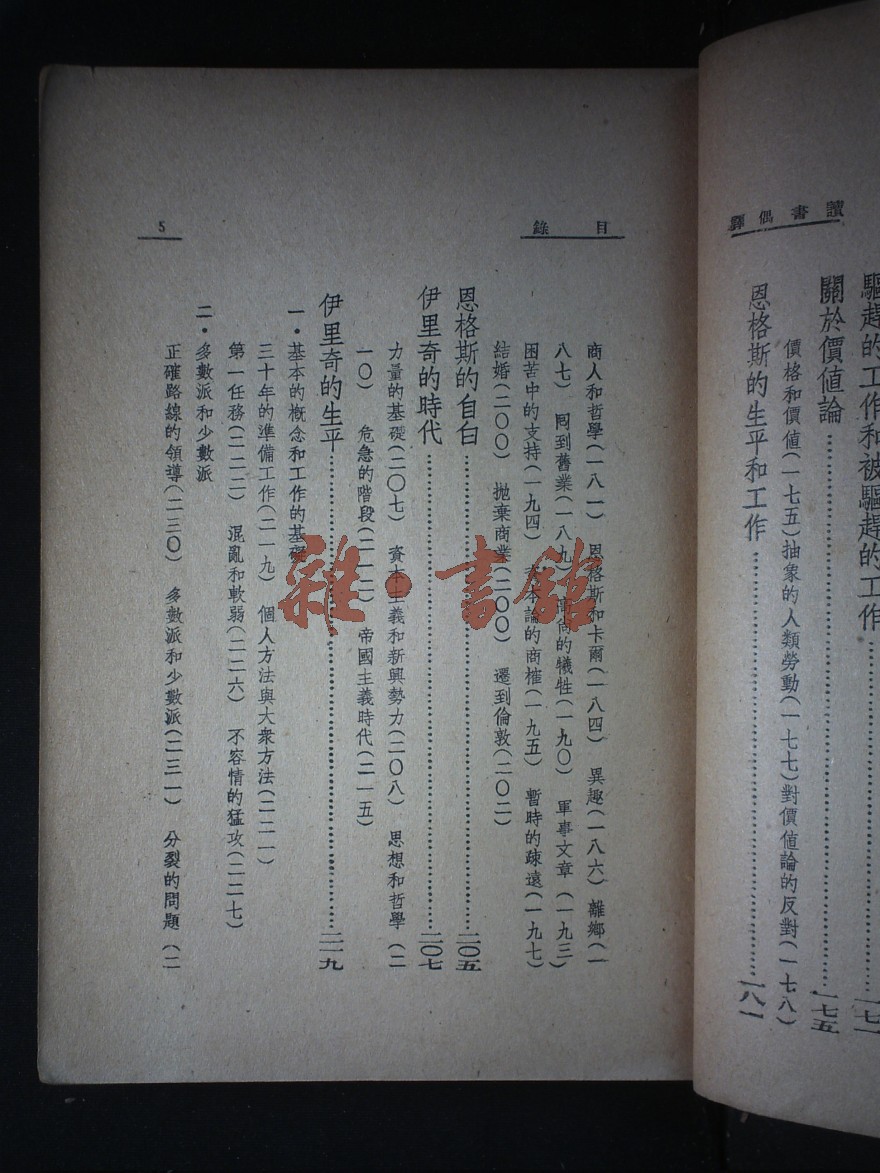 讀書偶譯
驅趕的工作和被驅趕的工作……一七一
關於價值論……一七五
價格和價值(一七五)抽象的人類勞動(一七七)對價值論的反對(一七八)
恩格斯的生平和工作……一八一
目錄
5
商人和哲學(一八一) 恩格斯和卡爾(一八四) 異趣(一八六)離鄉(一
八七) 囘到舊業(一八九) 高尚的犧牲(一九〇) 軍事文章(一九三)
困苦中的支持(一九四) 資本論的商榷(一九五) 暫時的疎遠(一九七)
結婚(二〇〇) 拋棄商業(二〇〇) 遷到倫敦(二〇二)
恩格斯的自白……二〇五
伊里奇的時代……二〇七
力量的基礎(二〇七) 資本主義和新興勢力(二〇八) 思想和哲學(二
一〇) 危急的階段(二一二) 帝國主義時代(二一五)
伊里奇的生平……二一九
一・基本的概念和工作的基礎
三十年的準備工作(二一九) 個人方法與大衆方法(二二一)
第一任務(二二二) 混亂和軟弱(二二六) 不容情的猛攻(二二七)
二・多數派和少數派
正確路線的領導(二三〇) 多數派和少數派(二三一) 分裂的問題(二
雜・書館